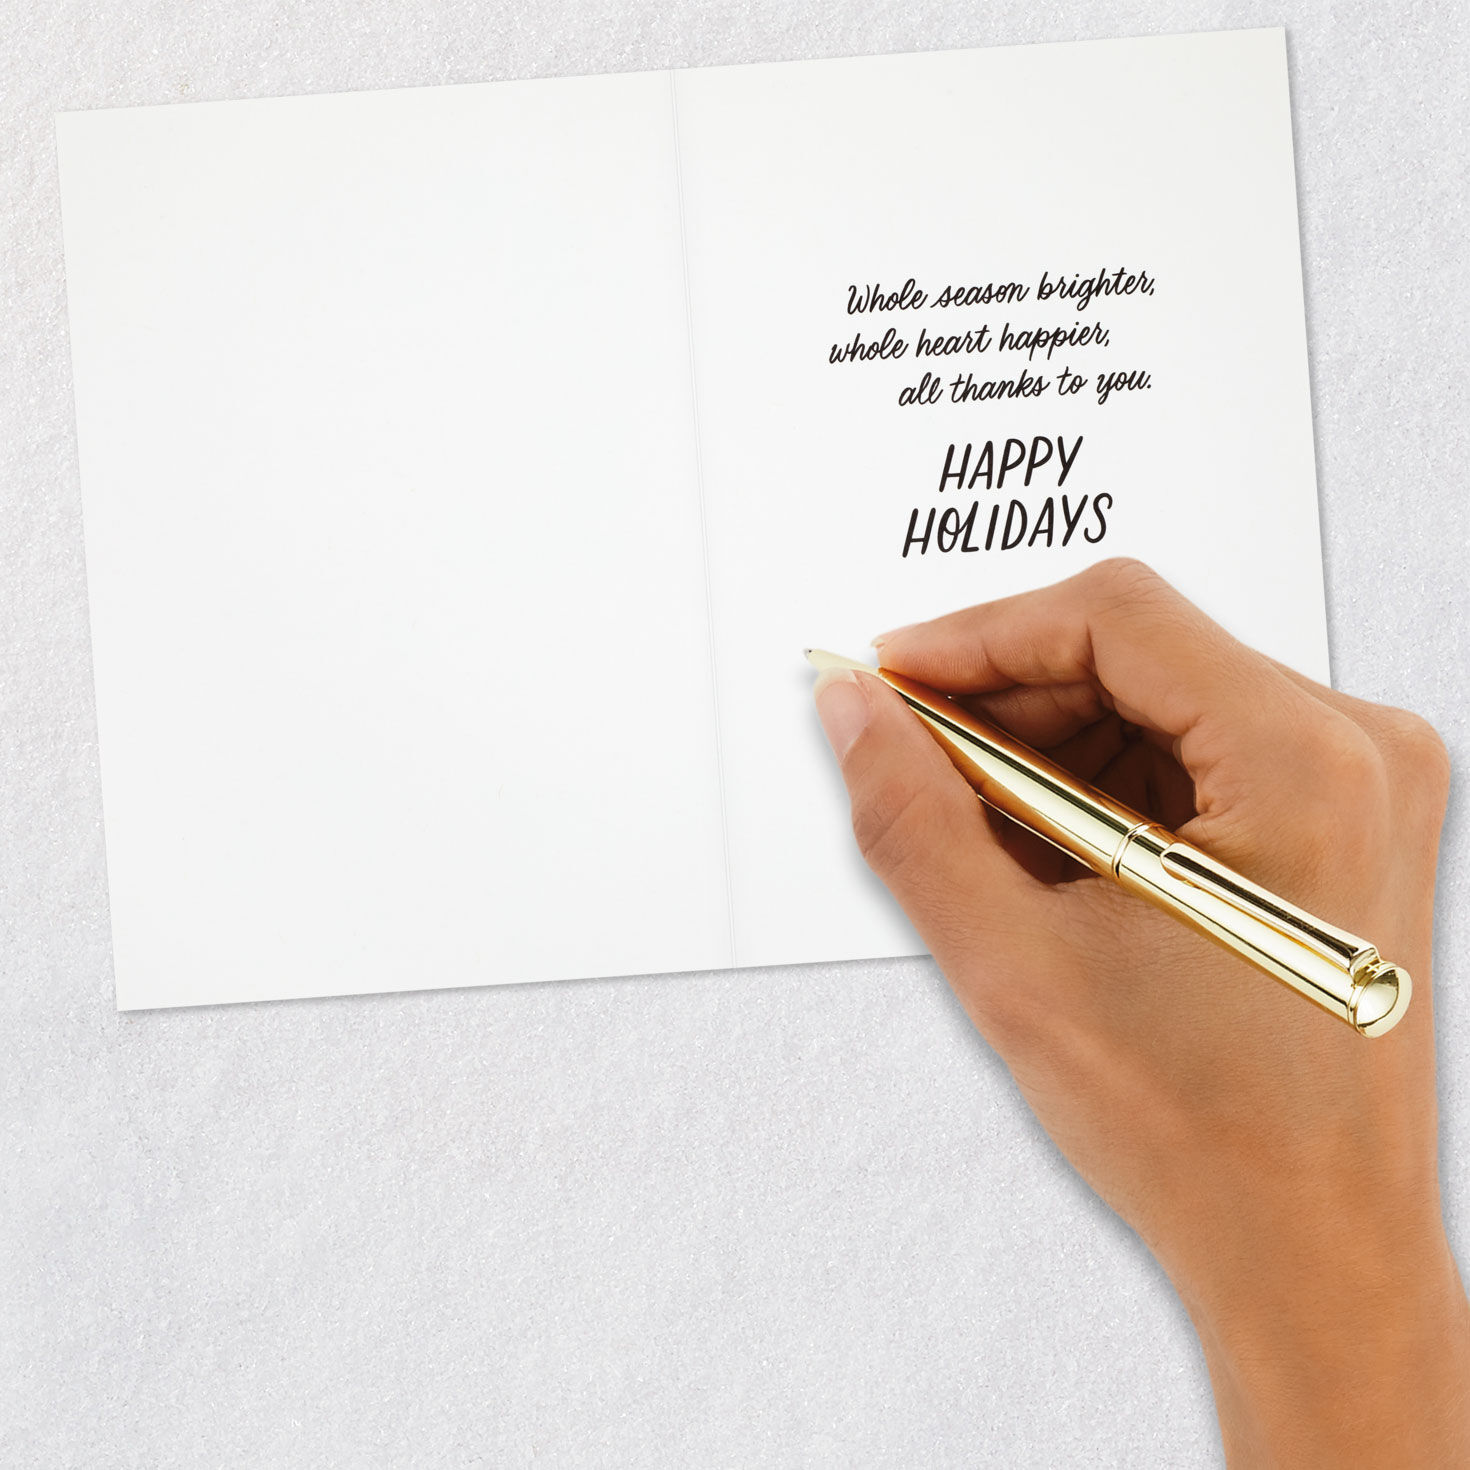 Whole season brighter,
whole heart happier,
all thanks to you.
HAPPY
HOLIDAYS